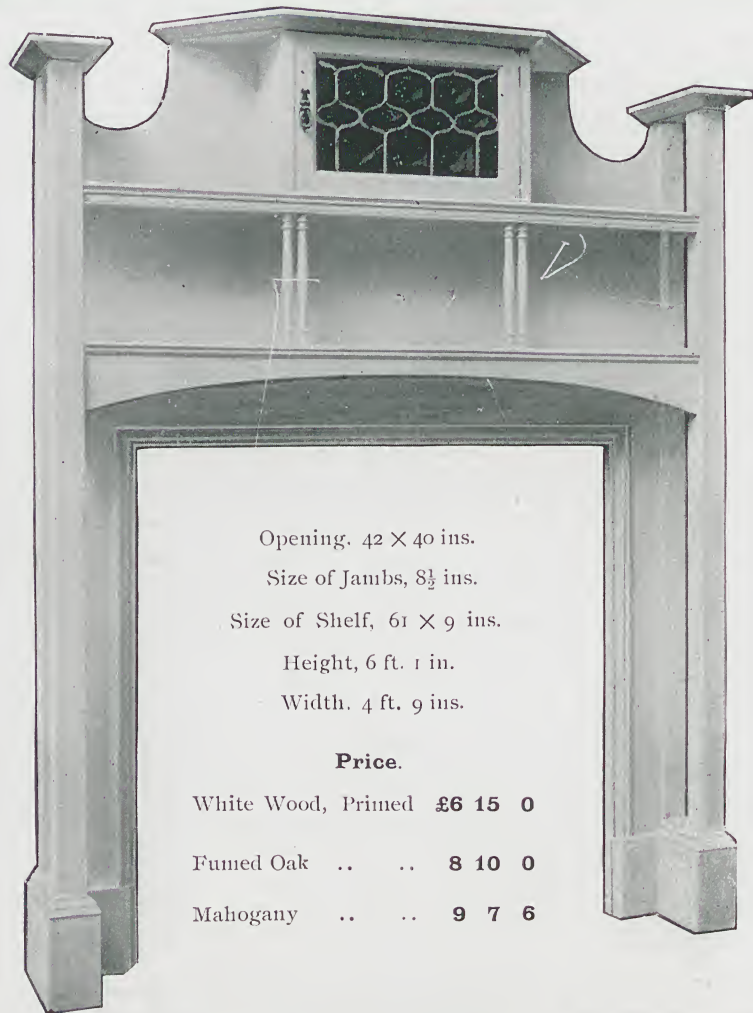 Opening. 42 × 40 ins.
Size of Jambs, 8½ ins.
Size of Shelf, 61 × 9 ins.
Height, 6 ft. 1 in.
Width. 4 ft. 9 ins.
Price.
White Wood, Primed £6 15 0
Fumed Oak .. .. 8 10 0
Mahogany .. .. 9 7 6